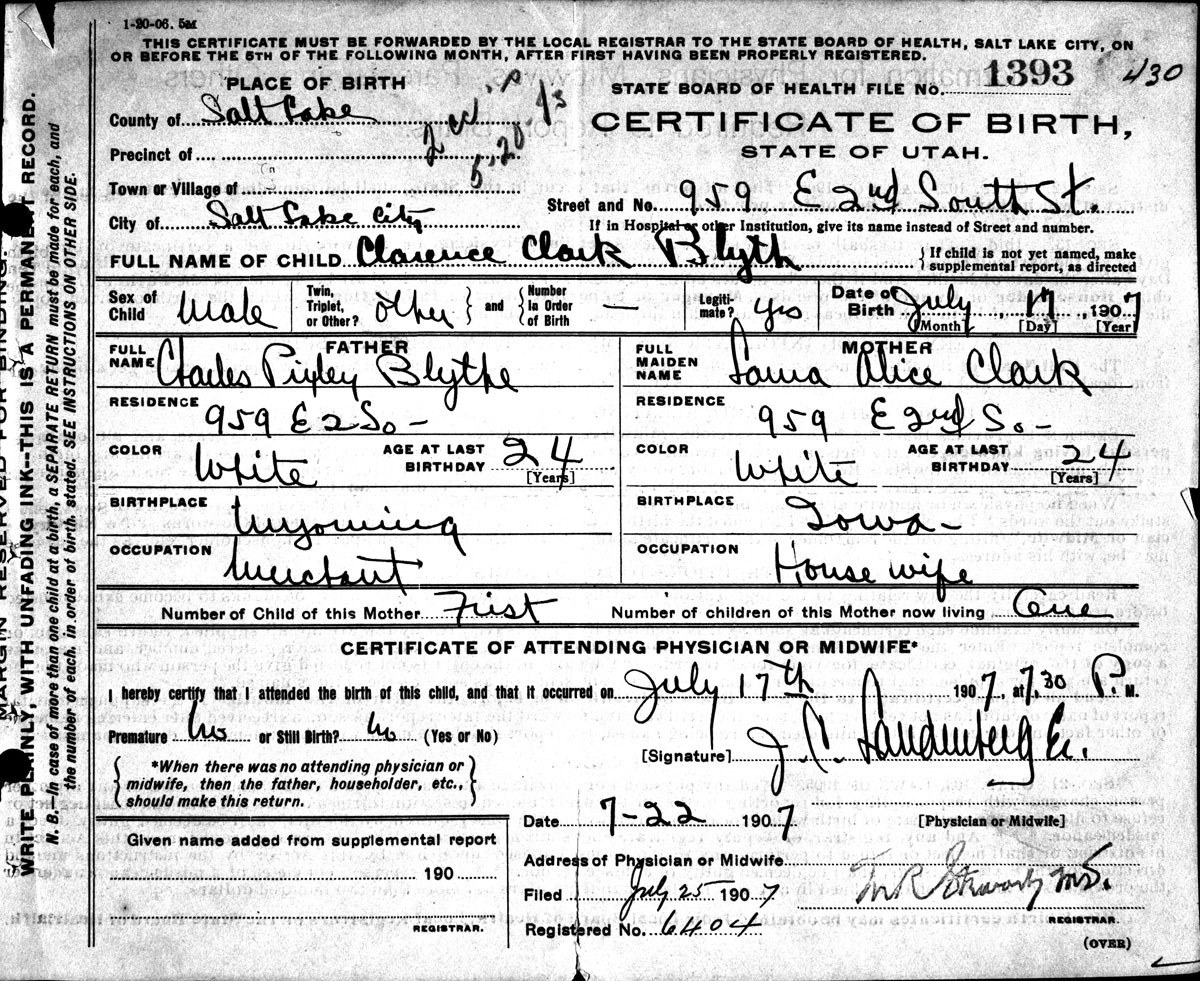 1-20-06. 5M
THIS CERTIFICATE MUST BE FORWARDED BY THE LOCAL REGISTRAR TO THE STATE BOARD OF HEALTH, SALT LAKE CITY, ON
OR BEFORE THE 5TH OF THE FOLLOWING MONTH, AFTER FIRST HAVING BEEN PROPERLY REGISTERED.
STATE BOARD OF HEALTH FILE No. 1393 430
PLACE OF BIRTH
County of Salt Lake
CERTIFICATE OF BIRTH,
STATE OF UTAH.
Precinct of
Town or Village of
Street and No. 959 E 2nd South St.
City of Salt Lake City
If in Hospital or other Institution, give its name instead of Street and number.
FULL NAME OF CHILD Clarence Clark Blyth { If child is not yet named, make
supplemental report, as directed
Sex of Child Male Twin, Triplet, or Other? other } and { Number In Order of Birth — Legiti-mate? yes Date of Birth July 17, 1907
[Month] [Day] [Year]
FATHER
FULL NAME Charles Pixley Blythe
RESIDENCE 959 E 2 So -
COLOR White AGE AT LAST BIRTHDAY 24 [Years]
BIRTHPLACE Wyoming
OCCUPATION Merchant
MOTHER
FULL MAIDEN NAME Laura Alice Clark
RESIDENCE 959 E 2nd So -
COLOR White AGE AT LAST BIRTHDAY 24 [Years]
BIRTHPLACE Iowa -
OCCUPATION House wife
Number of Child of this Mother First Number of children of this Mother now living One
CERTIFICATE OF ATTENDING PHYSICIAN OR MIDWIFE*
I hereby certify that I attended the birth of this child, and that it occurred on July 17th 1907, at 7.30 P. M.
Premature No or Still Birth? No (Yes or No)
[Signature] J. C.
*When there was no attending physician or
midwife, then the father, householder, etc.,
should make this return.
Date 7-22 1907 [Physician or Midwife]
Given name added from supplemental report
190
REGISTRAR.
Address of Physician or Midwife
Filed July 25 1907
M.D.
Registered No. 6404 REGISTRAR.
(OVER)
MARGIN RESERVED FOR BINDING.
WRITE PLAINLY, WITH UNFADING INK--THIS IS A PERMANENT RECORD.
N. B.--In case of more than one child at a birth, a SEPARATE RETURN must be made for each, and
the number of each, in order of birth, stated. SEE INSTRUCTIONS ON OTHER SIDE.